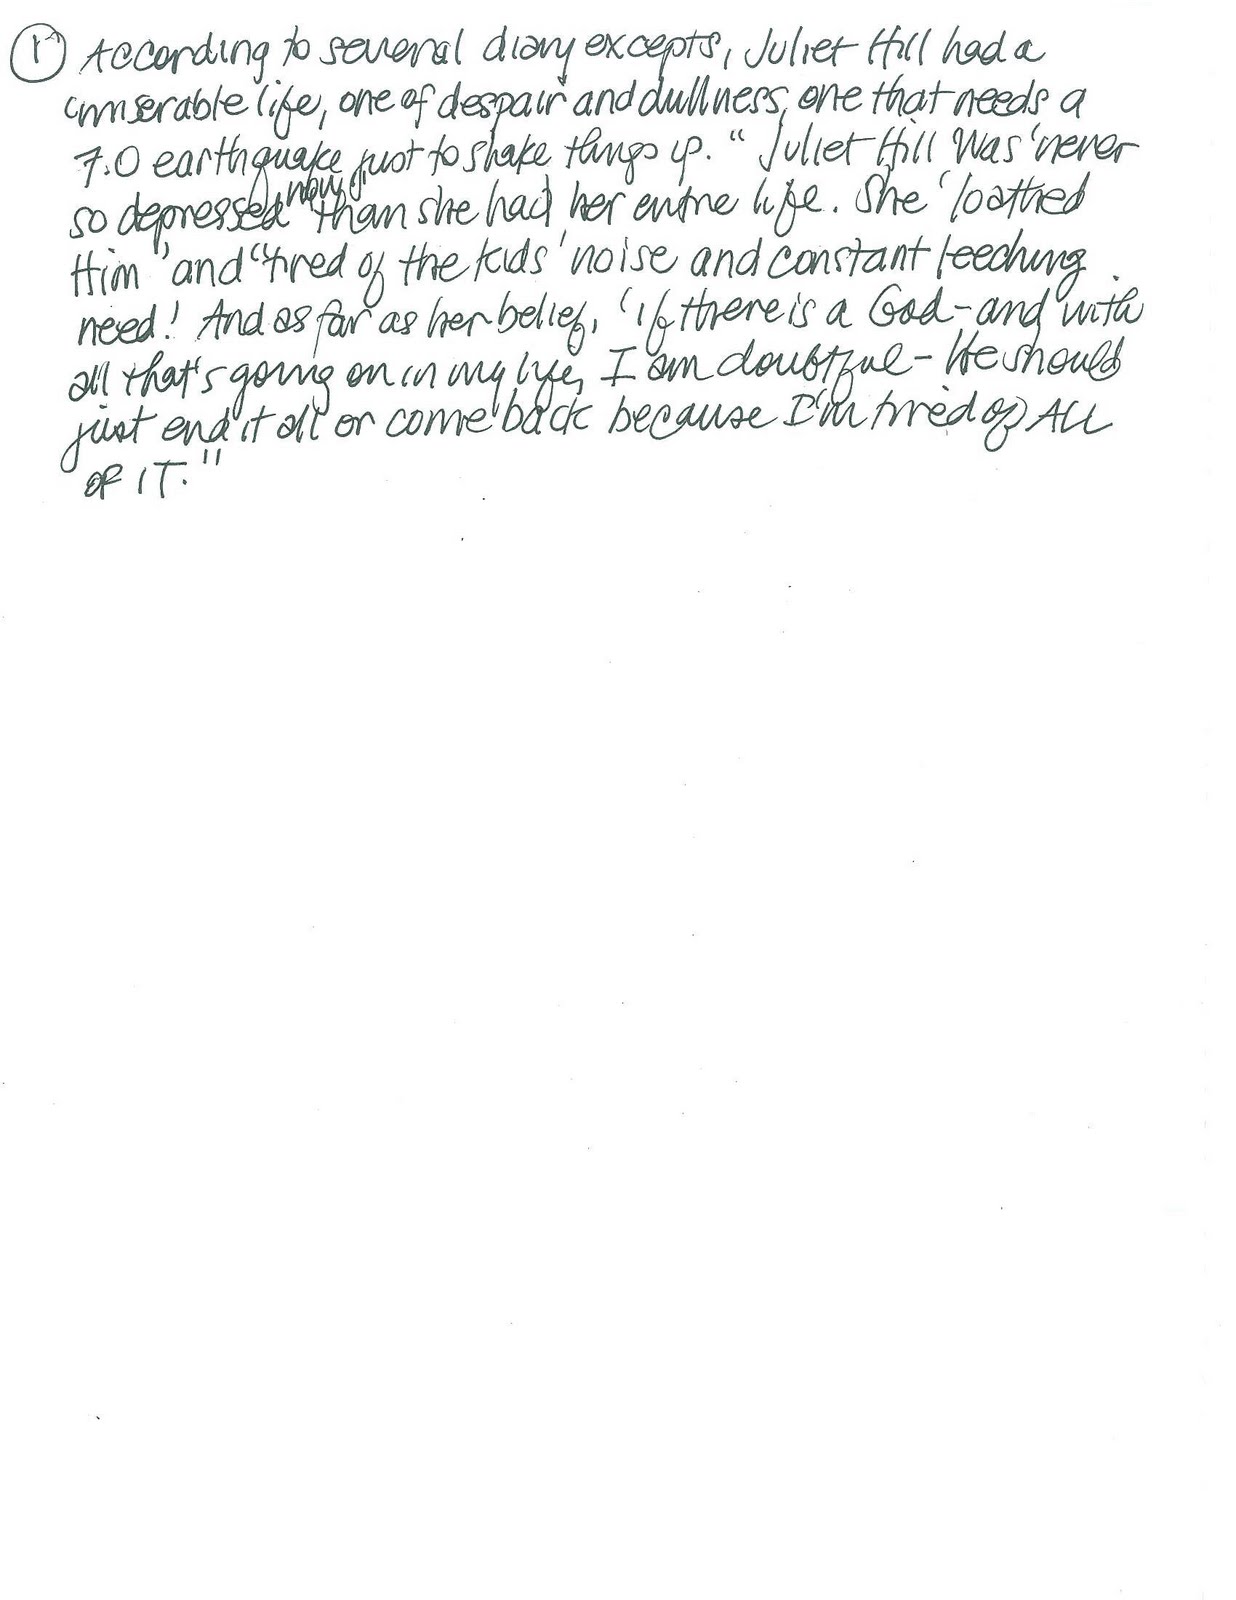 1 According to several diary excepts, Juliet Hill had a
miserable life, one of despair and dullness, one that needs a
7.0 earthquake just to shake things up." Juliet Hill was 'never
so depressed now" than she had her entire life. She 'loathed
Him' and "tired of the kids' noise and constant leeching
need! And as far as her belief, 'if there is a God - and with
all that's going on in my life, I am doubtful - He should
just end it all or come back because I'm tired of ALL
OF IT."